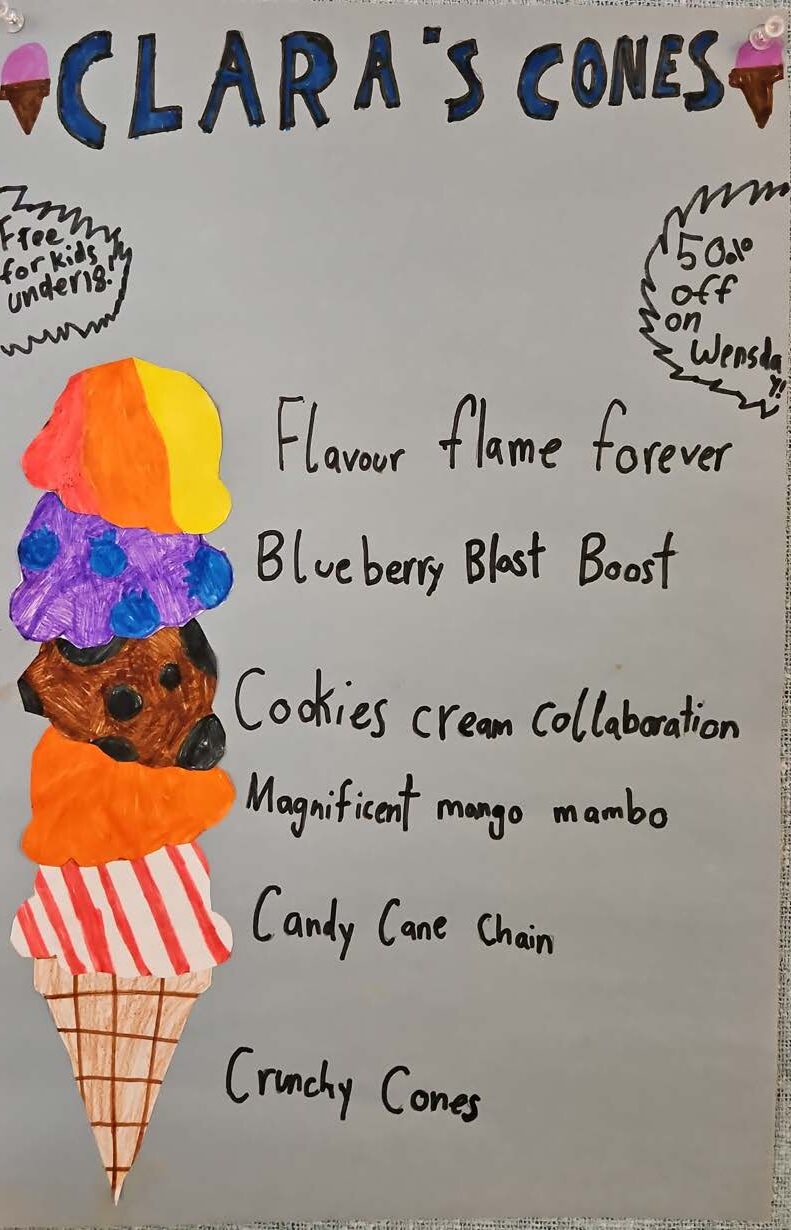 CLARA'S CONES
Free
for kids
under 18!
50%
off
on
Wensda
y!
Flavour flame forever
Blueberry Blast Boost
Cookies cream collaboration
Magnificent mango mambo
Candy Cane Chain
Crunchy Cones